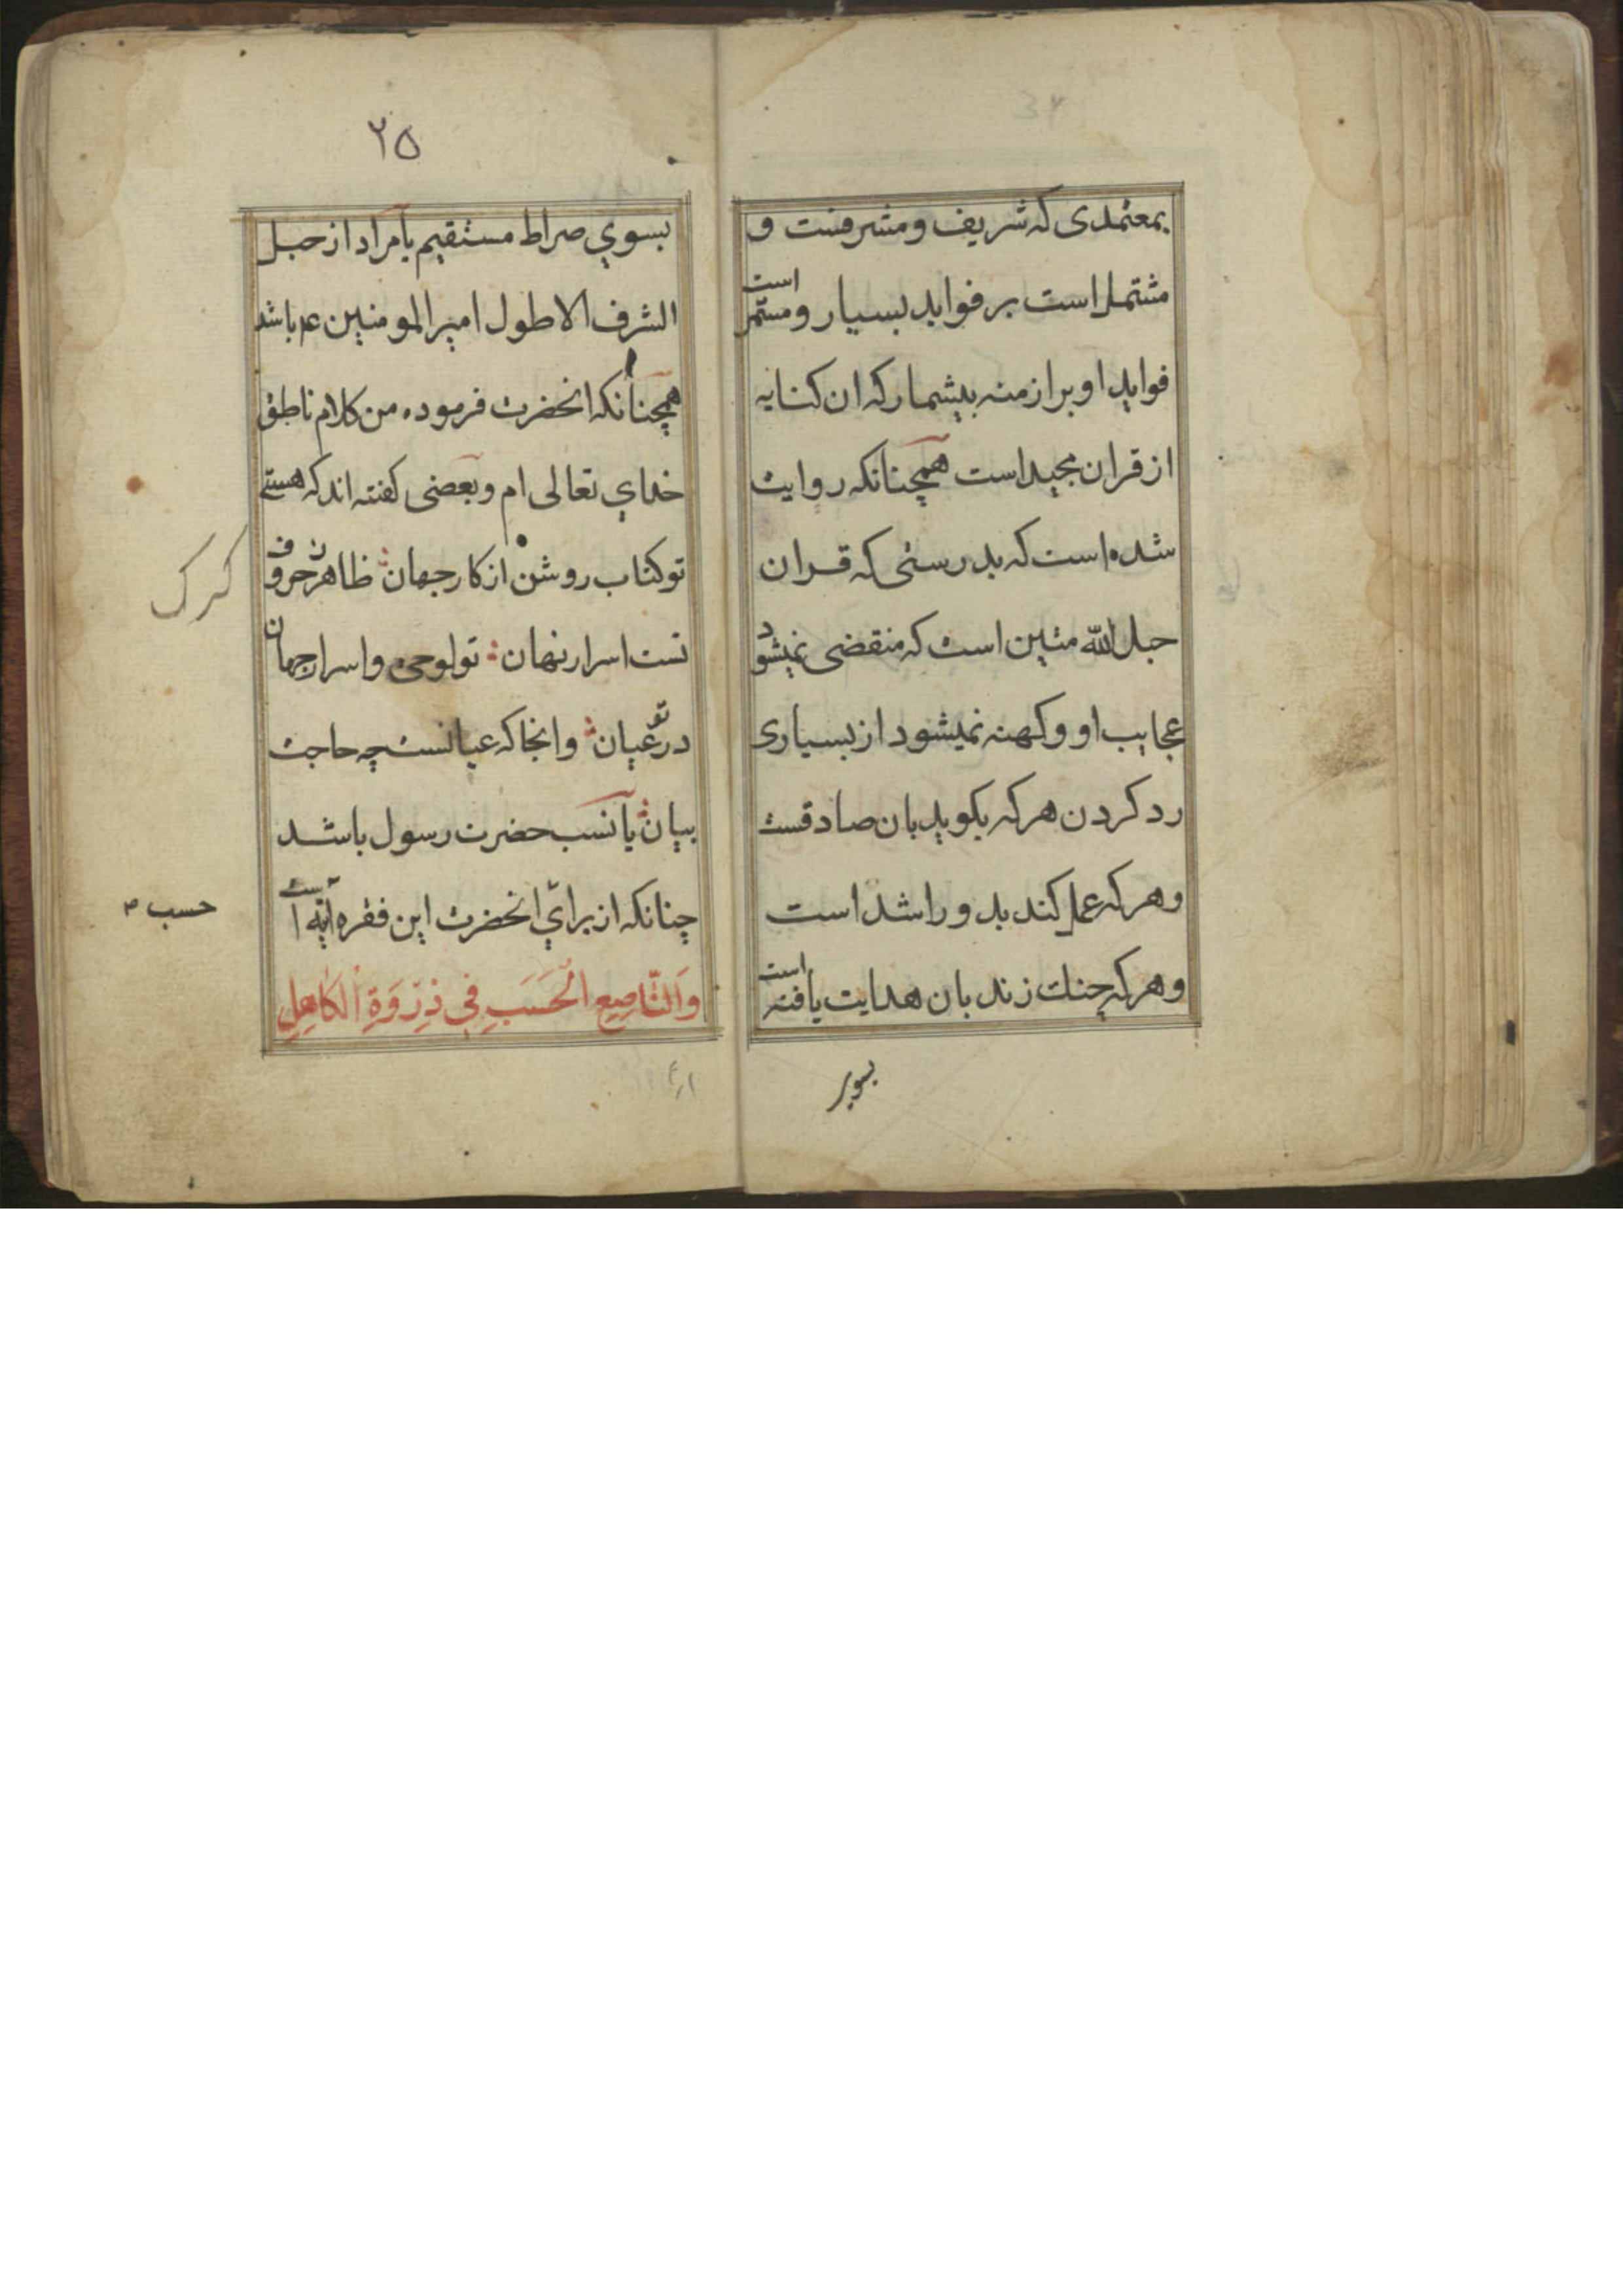 بمعتمدی که شریف و مشرفست و
مشتمل است بر فواید بسیار و مستمر است
فواید او بر ازمنه بیشمار که ان کنایه
از قران مجید است همچنانکه روایت
شده است که بدرستی که قران
حبل الله متین است که منقضی نمیشود
عجایب او و کهنه نمیشود از بسیاری
رد کردن هر که بکوید بان صادقست
و هر که عمل کند بدو راشد است
و هر که چنك زند بان هدایت یافته است
بسوی
۲۵
بسوي صراط مستقیم یا مراد از حبل
الشرف الاطول امیر المومنین عم باشد
همچنانکه انحضرت فرموده من کلام ناطق
خداي تعالی ام و بعضی کفته اند که هستے
تو کتاب روشن از کار جهان ظاهر ز حروف
تست اسرار نهان تو لوحی و اسرار جهان
در تو عیان وانجا که عیانست چه حاجت
بیان یا نسب حضرت رسول باشد
چنانکه از براي انحضرت این فقره آیه است
وَالنَّاصِعِ الْحَسَبِ فِي ذِرْوَةِ الْكَاهِلِ
کرک
حسب